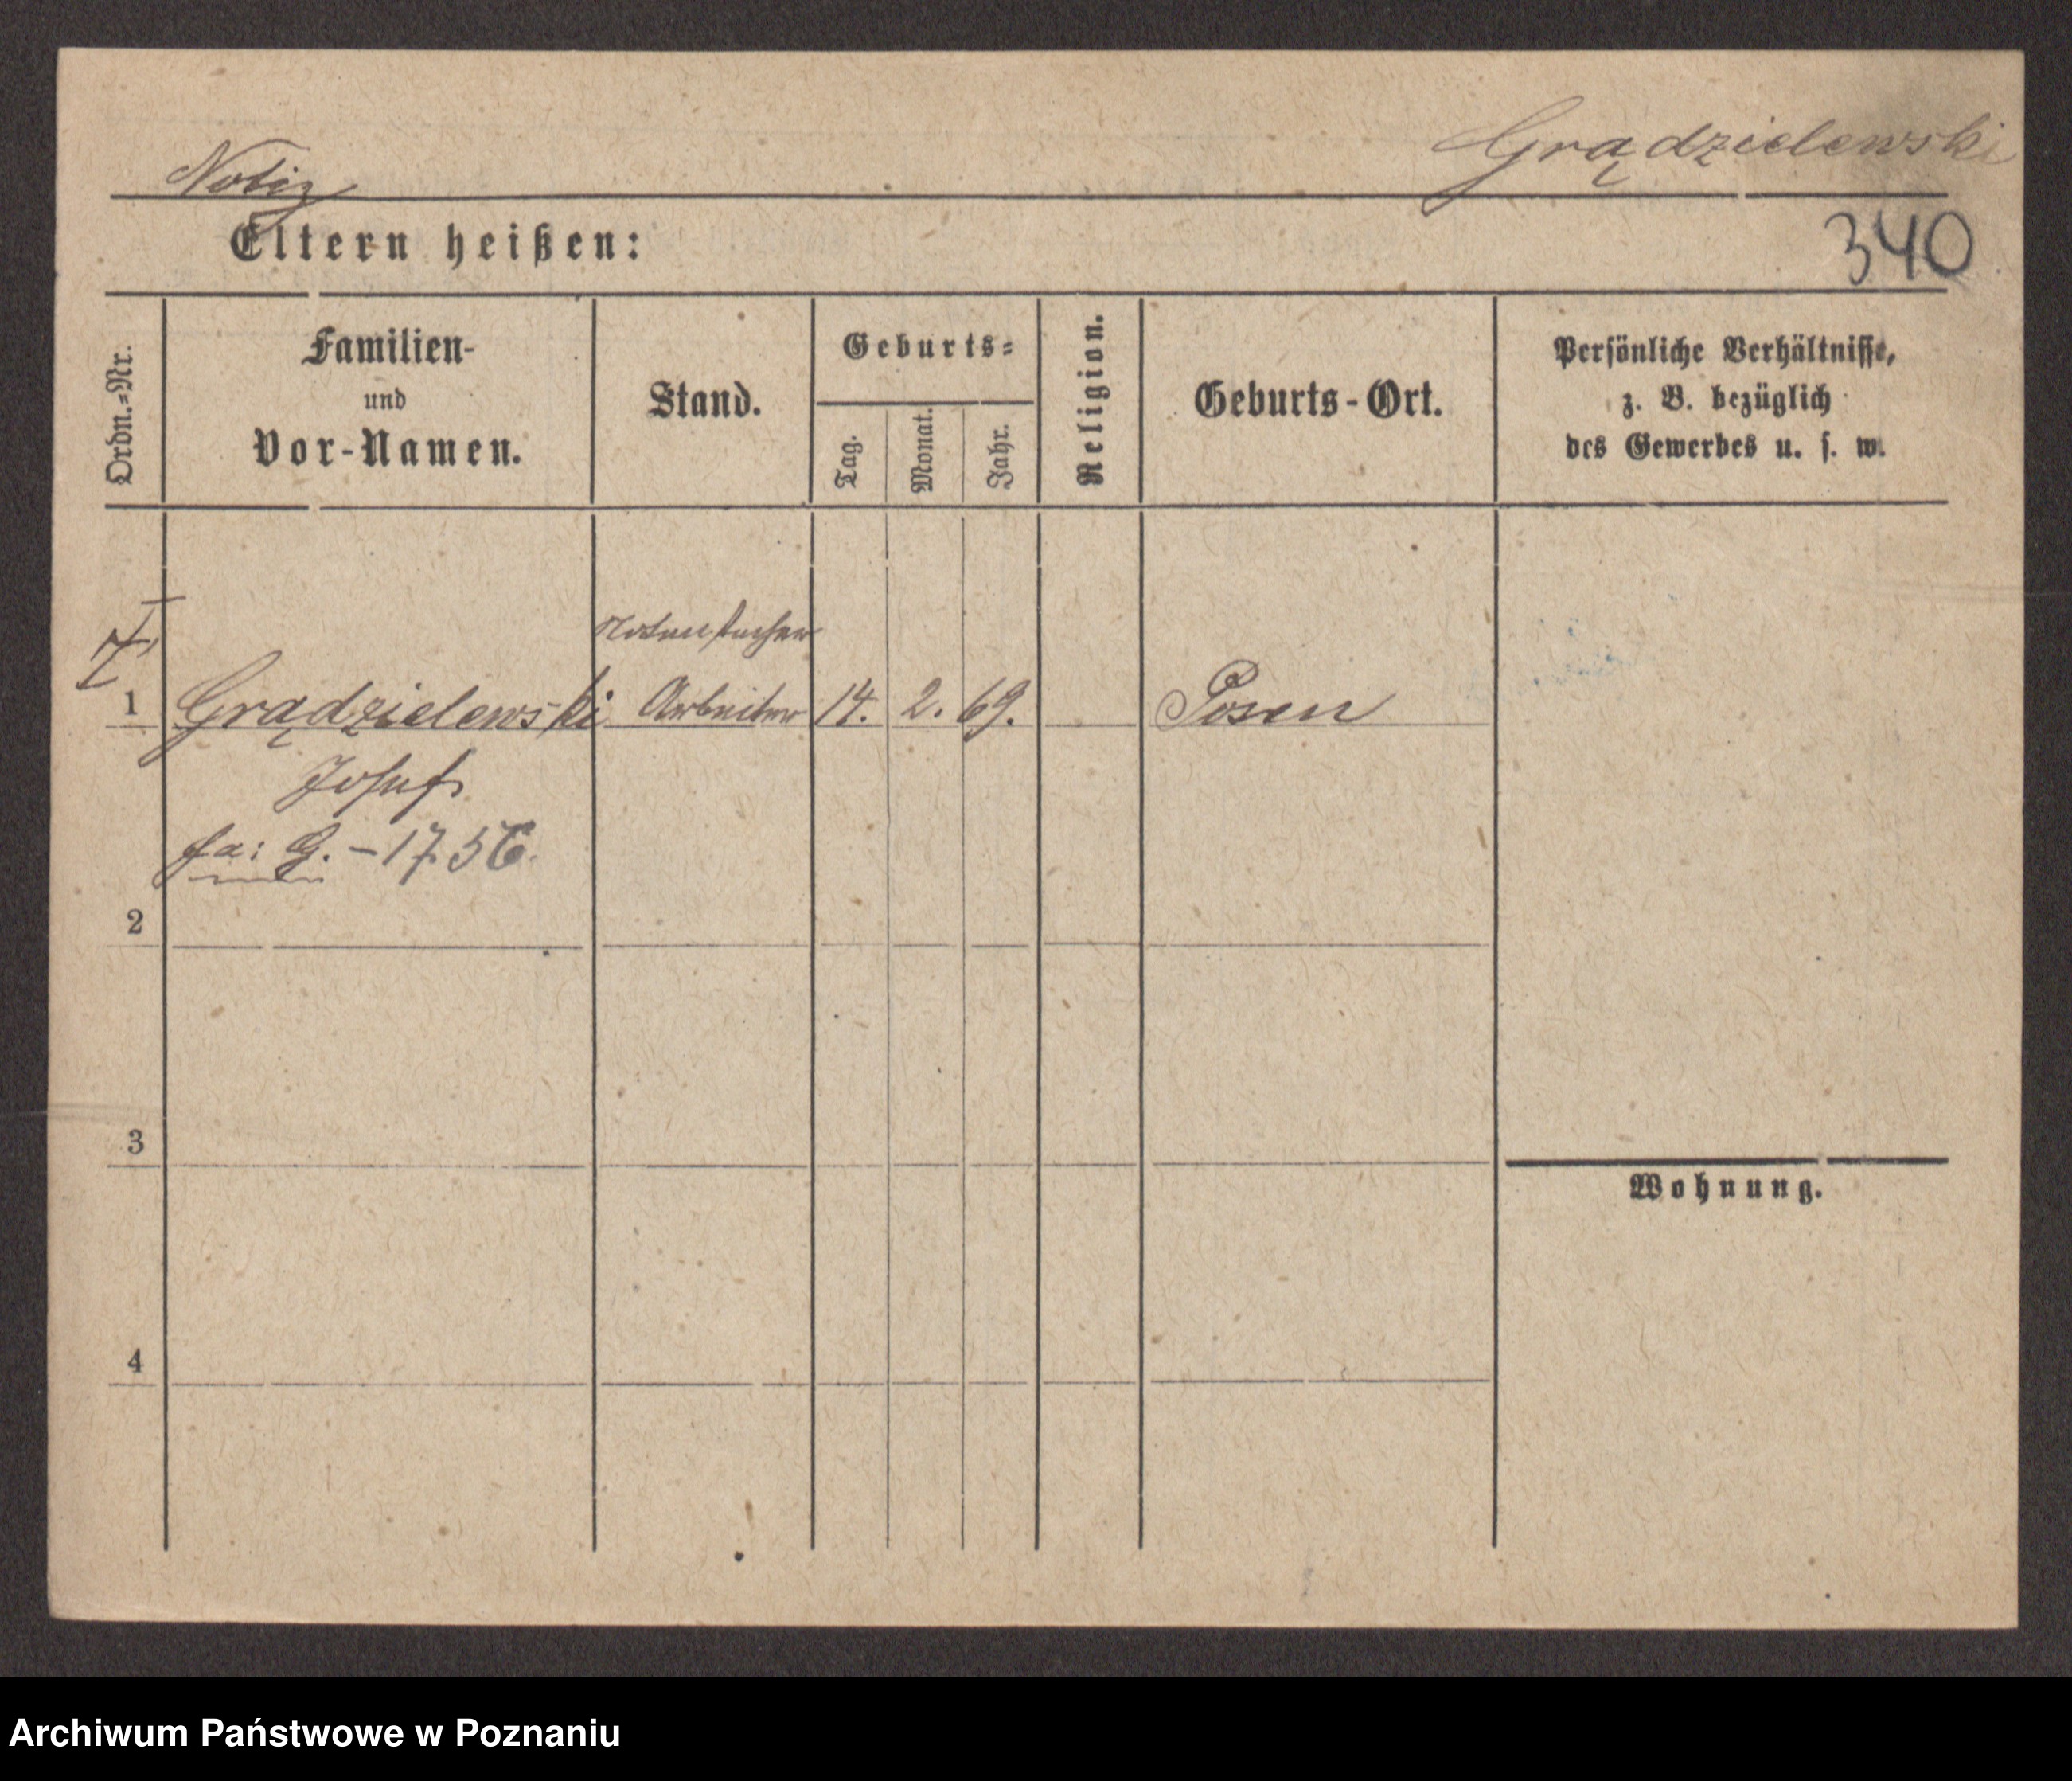 Grądzielewski
Notiz
Eltern heißen:
340
Ordn.=Nr.
Familien-
und
Vor-Namen.
Stand.
Geburts=
Tag.
Monat.
Jahr.
Religion.
Geburts-Ort.
Persönliche Verhältnisse,
z. B. bezüglich
des Gewerbes u. s. w.
1 Grądzielewski Arbeiter 14. 2. 69. Posen
Josef
fa: G. - 17.56.
2
3
Wohnung.
4
Archiwum Państwowe w Poznaniu